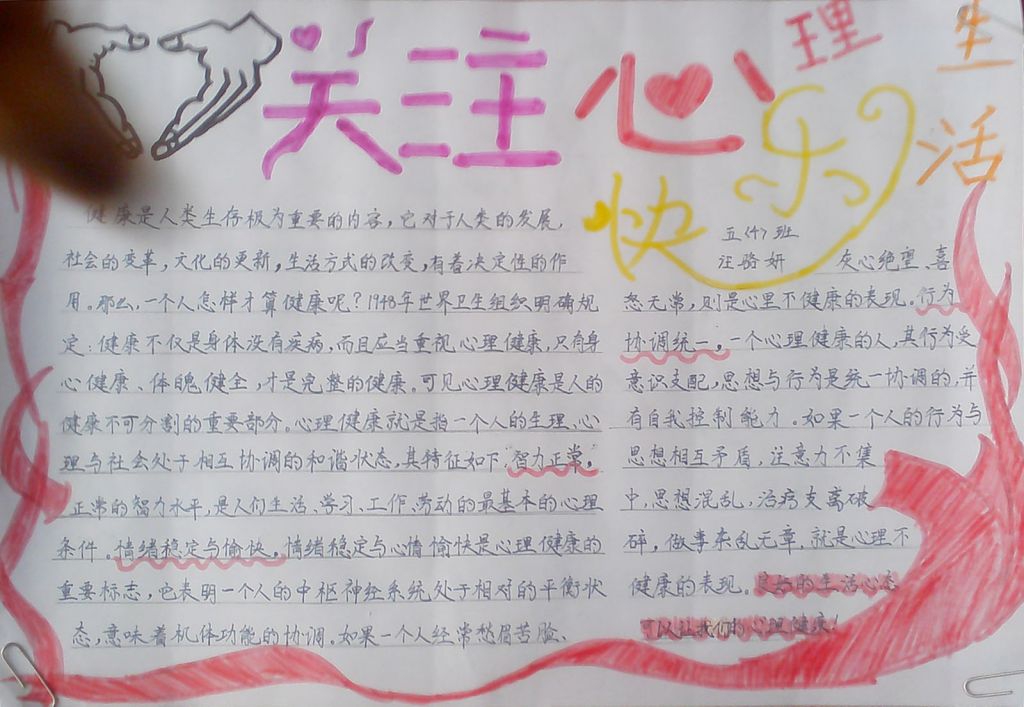 关注心理
快乐
生活
五〈4〉班
汪骆妍
健康是人类生存极为重要的内容，它对于人类的发展，
社会的变革，文化的更新，生活方式的改变，有着决定性的作
用。那么，一个人怎样才算健康呢？1948年世界卫生组织明确规
定：健康不仅是身体没有疾病，而且应当重视心理健康，只有身
心健康、体魄健全，才是完整的健康。可见心理健康是人的
健康不可分割的重要部分。心理健康就是指一个人的生理、心
理与社会处于相互协调的和谐状态，其特征如下：智力正常，
正常的智力水平，是人们生活、学习、工作、劳动的最基本的心理
条件。情绪稳定与愉快，情绪稳定与心情愉快是心理健康的
重要标志，它表明一个人的中枢神经系统处于相对的平衡状
态，意味着机体功能的协调。如果一个人经常愁眉苦脸、
灰心绝望、喜
怒无常，则是心里不健康的表现。行为
协调统一，一个心理健康的人，其行为受
意识支配，思想与行为是统一协调的，并
有自我控制能力。如果一个人的行为与
思想相互矛盾，注意力不集
中，思想混乱，治疗支离破
碎，做事杂乱无章，就是心理不
健康的表现。良好的生活心态
可以让我们的心理健康！